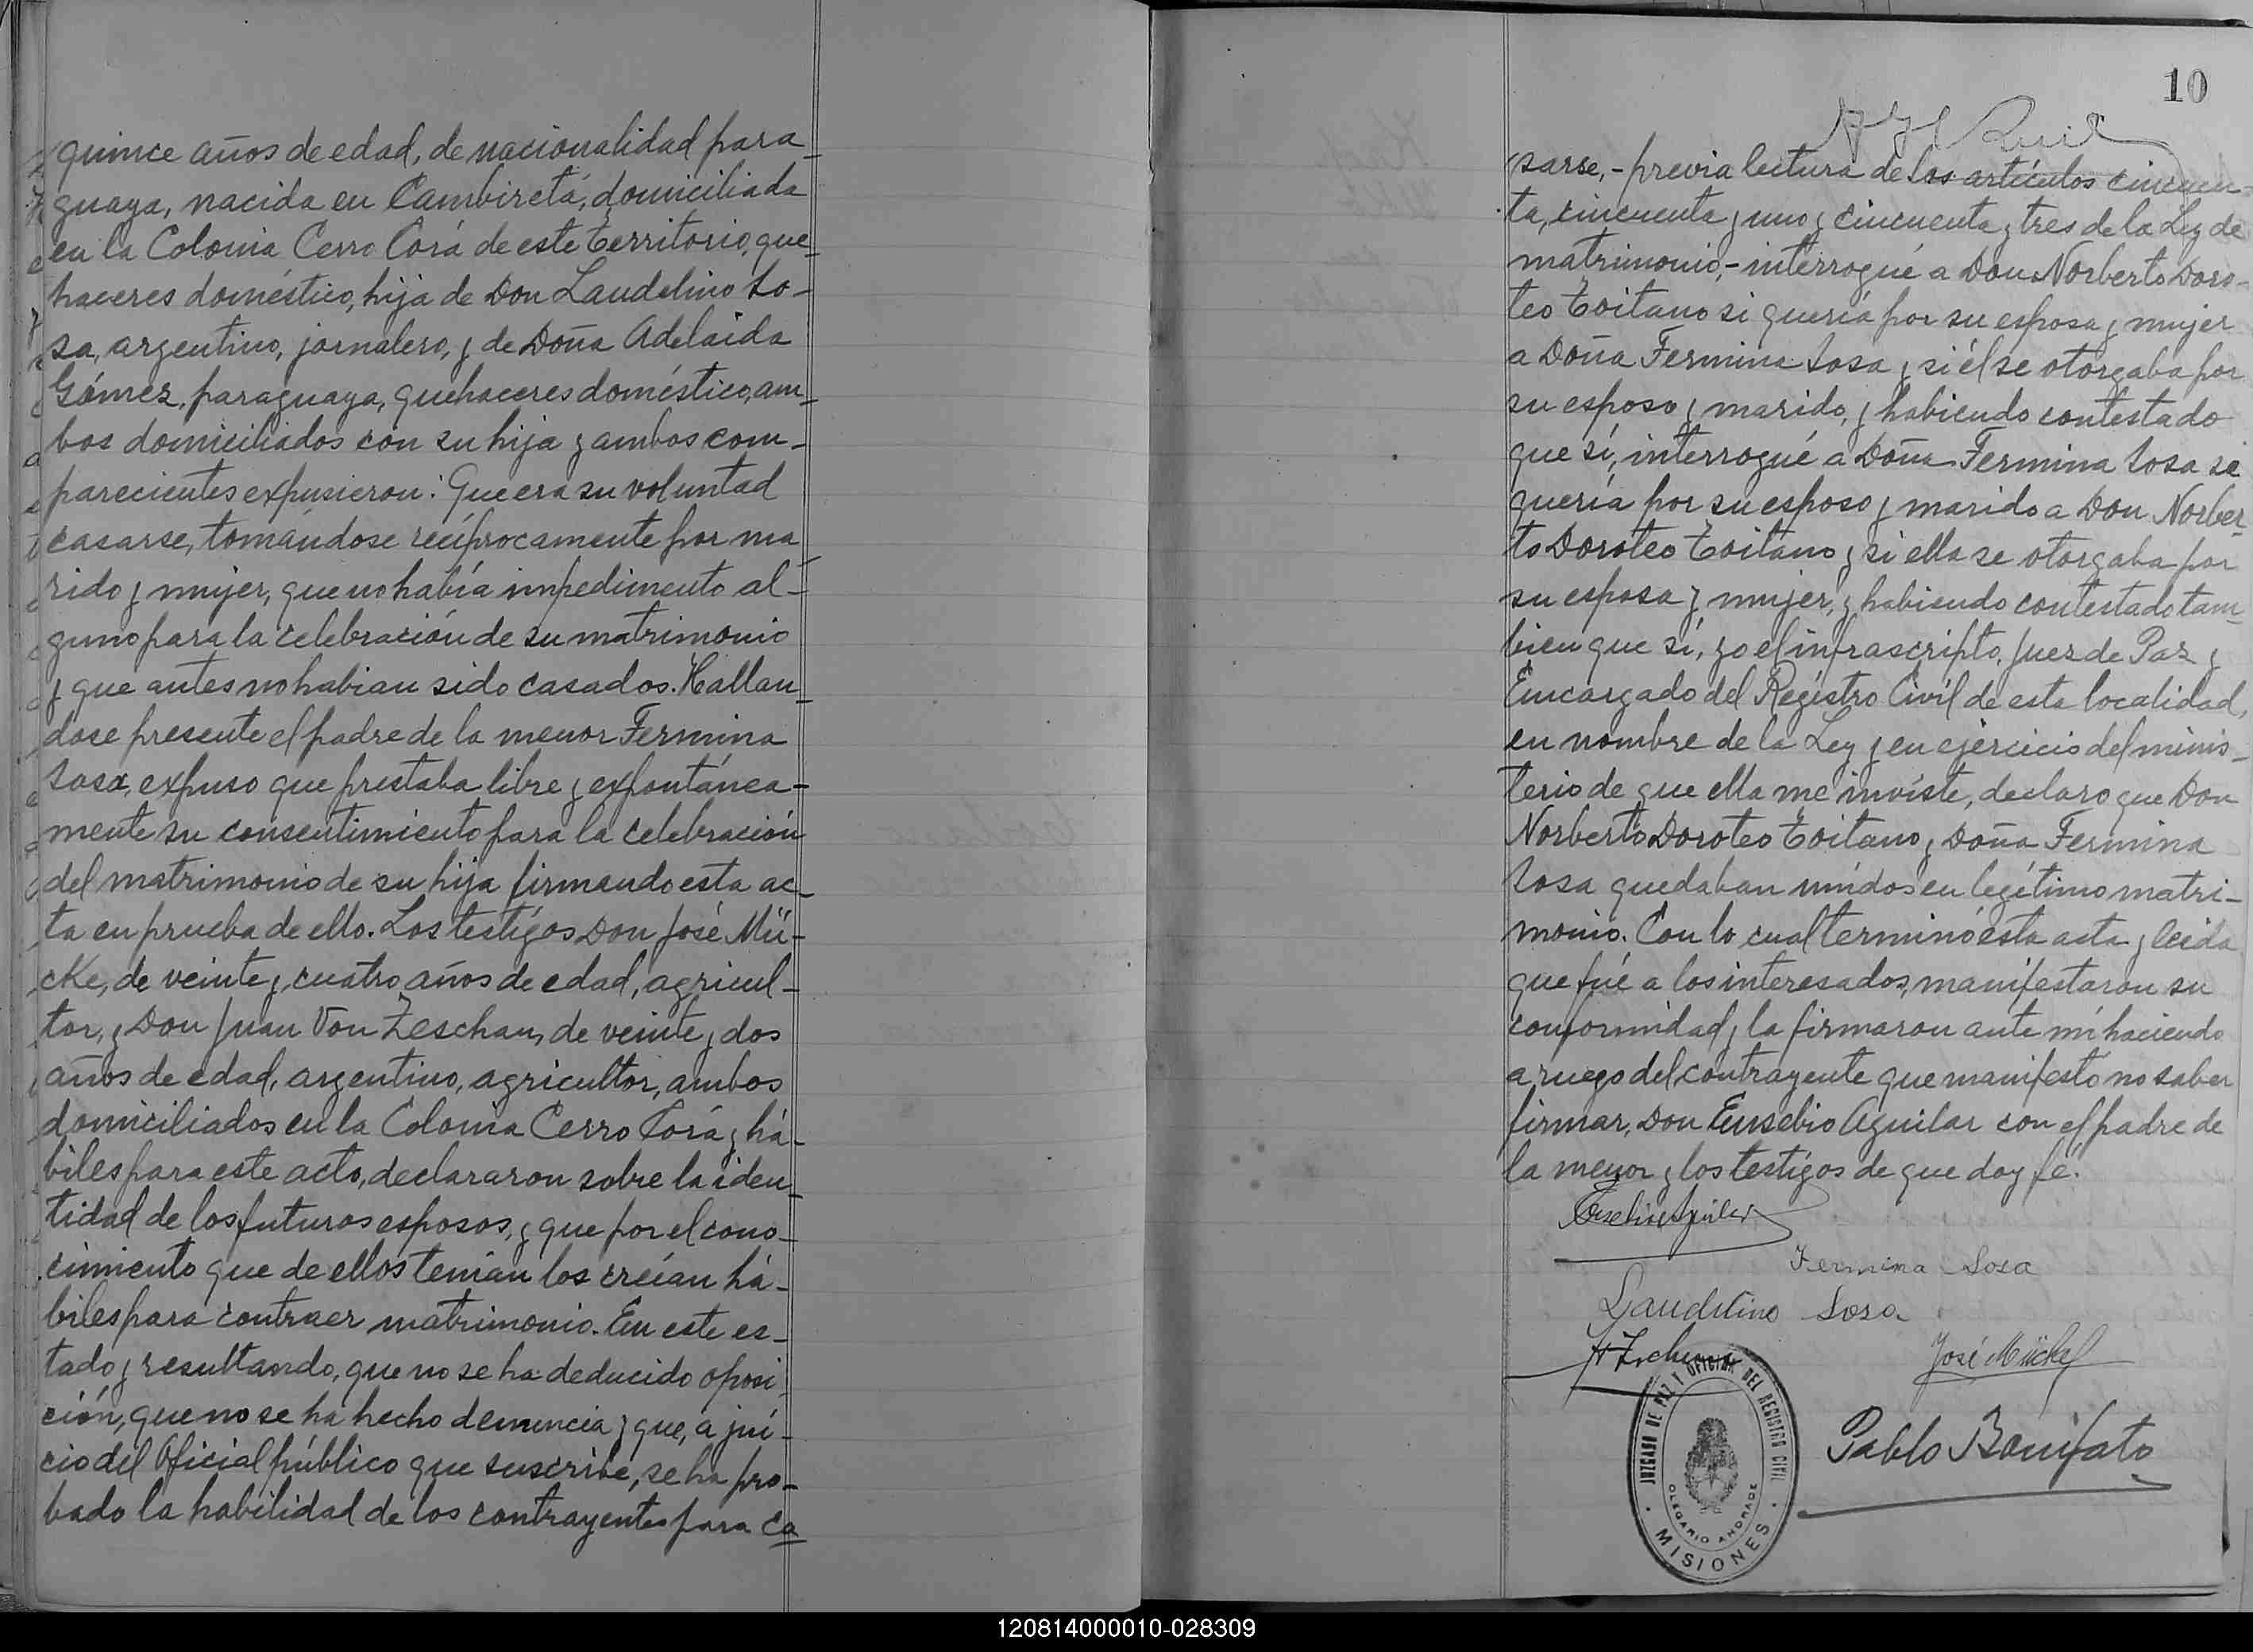 quince años de edad, de nacionalidad para_
guaya, nacida en Cambiretá, domiciliada
en la Colonia Cerro Corá de este territorio, que_
haceres doméstico, hija de Don Laudelino So-
sa, argentino, jornalero, y de Doña Adelaida
Gómez, paraguaya, quehaceres doméstico, am_
bos domiciliados con su hija y ambos com_
parecientes expusieron: Que era su voluntad
casarse, tomándose recíprocamente por ma_
rido y mujer, que no había impedimento al-
guno para la celebración de su matrimonio
y que antes no habian sido casados. Hallan_
dose presente el padre de la menor Fermina
Sosa, expuso que prestaba libre y expontánea-
mente su consentimiento para la celebración
del matrimonio de su hija firmando esta ac_
ta en prueba de ello. Los testigos Don José Mü-
cke, de veinte y cuatro años de edad, agricul-
tor, y Don Juan Von Zeschau, de veinte y dos
años de edad, argentino, agricultor, ambos
domiciliados en la Colonia Cerro Corá y há-
biles para este acto, declararon sobre la iden_
tidad de los futuros esposos, y que por el cono_
cimiento que de ellos tenían los creían há-
biles para contraer matrimonio. En este es_
tado y resultando, que no se ha deducido oposi_
ción, que no se ha hecho denuncia y que, a jui-
cio del Oficial público que suscribe, se ha pro-
bado la habilidad de los contrayentes para ca
10
sarse,- previa lectura de los artículos cincuen-
ta, cincuenta y uno y cincuenta y tres de la Ley de
matrimonio,- interrogué a Don Norberto Doro-
teo Toitano si quería por su esposa y mujer
a Doña Fermina Sosa y si él se otorgaba por
su esposo y marido, y habiendo contestado
que sí, interrogué a Doña Fermina Sosa si
quería por su esposo y marido a Don Norber_
to Doroteo Toitano y si ella se otorgaba por
su esposa y mujer, y habiendo contestado tam_
bien que sí, yo el infrascripto, Juez de Paz y
Encargado del Registro Civil de esta localidad,
en nombre de la Ley y en ejercicio del minis_
terio de que ella me invíste, declaro que Don
Norberto Doroteo Toitano y Doña Fermina
Sosa quedaban unidos en legítimo matri-
monio. Con lo cual terminó esta acta y leida
que fué a los interesados, manifestaron su
conformidad y la firmaron ante mí haciendo
a ruego del contrayente que manifestó no saber
firmar, Don Eusebio Aguilar con el padre de
la menor y los testigos de que doy fé.
Eusebio Aguilar
Fermina Sosa
Laudelino Sosa
José Mücke
Pablo Bonifato
JUZGADO DE PAZ Y OFICINA DEL REGISTRO CIVIL
OLEGARIO ANDRADE
MISIONES
120814000010-028309